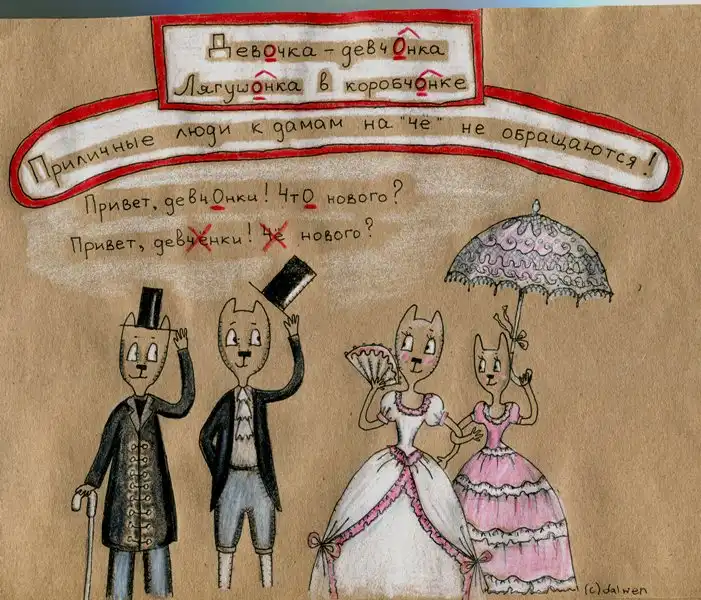 Девочка - девчОнка
Лягушонка в коробчонке
Приличные люди к дамам на "чё" не обращаются!
Привет, девчОнки! ЧтО нового?
Привет, девчёнки! Чё нового?
(c)dalwen